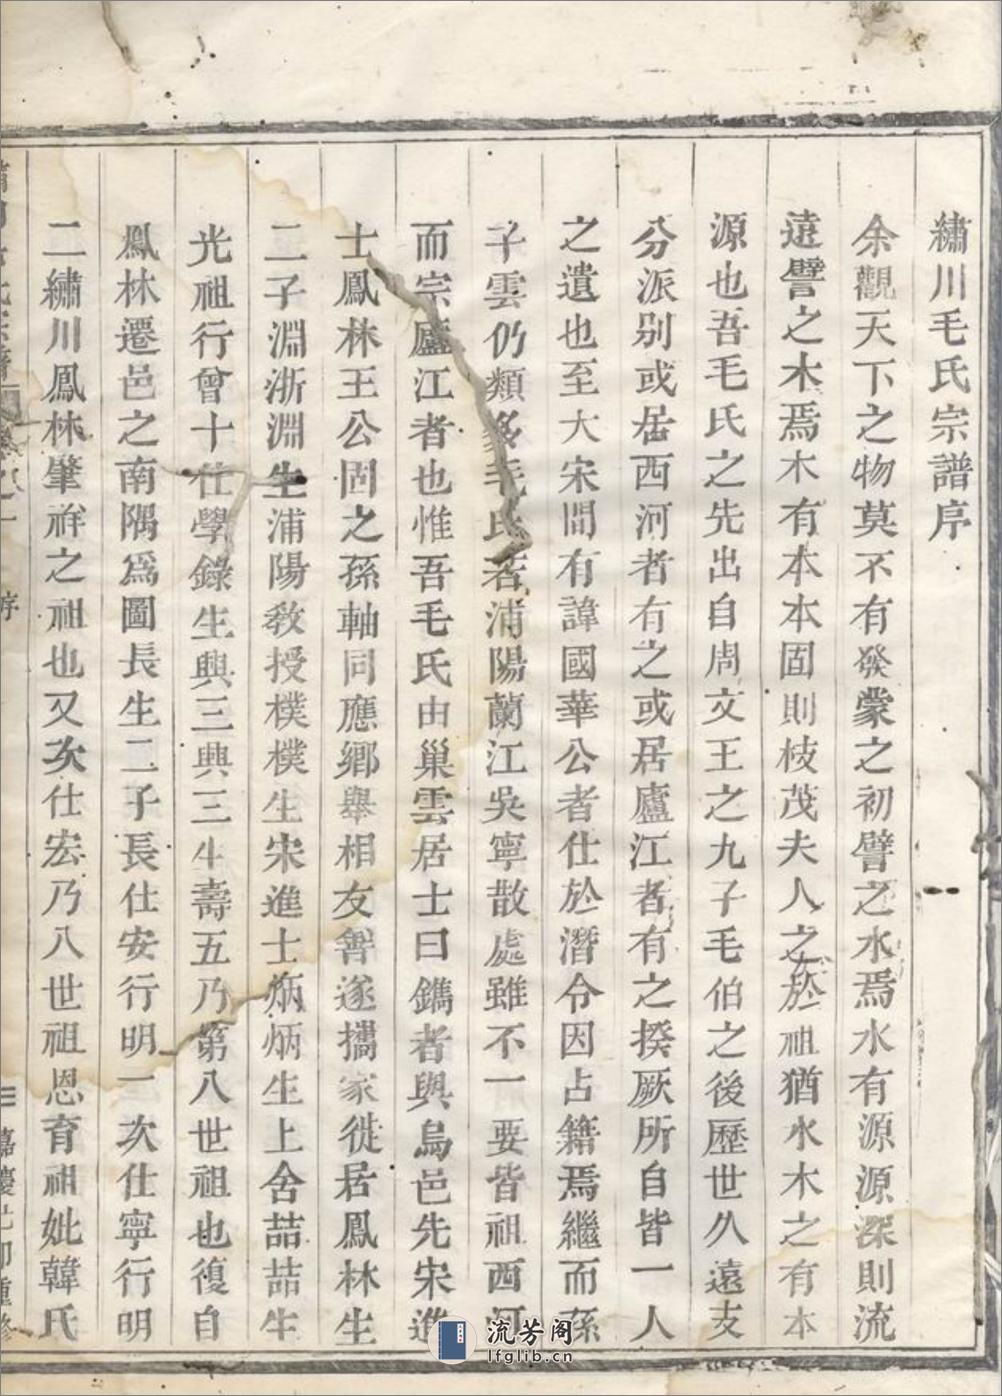 繡川毛氏宗譜序
余觀天下之物莫不有發蒙之初譬之水焉水有源源深則流
遠譬之木焉木有本本固則枝茂夫人之於祖猶水木之有本
源也吾毛氏之先出自周文王之九子毛伯之後歷世久遠支
分派别或居西河者有之或居廬江者有之揆厥所自皆一人
之遺也至大宋間有諱國華公者仕於潛令因占籍焉繼而孫
子雲仍類多毛氏若浦陽蘭江吳寧散處雖不一要皆祖西河
而宗廬江者也惟吾毛氏由巢雲居士曰鐫者與烏邑先宋進
士鳳林王公固之孫軸同應鄉舉相友善遂攜家徙居鳳林生
二子淵浙淵生浦陽教授樸樸生宋進士炳炳生上舍喆喆生
光祖行曾十仕學錄生興三興三生壽五乃第八世祖也復自
鳳林遷邑之南隅爲圖長生二子長仕安行明一次仕寧行明
二繡川鳳林肇祥之祖也又次仕宏乃八世祖恩育祖妣韓氏
毛氏宗譜 卷之一 序 三 嘉慶 卯重修
流芳阁
lfglib.cn